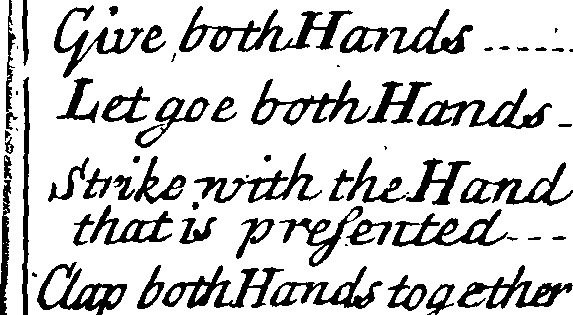 Give both Hands ......
Let goe both Hands -
Strike with the Hand
that is preſented ---
Clap both Hands together